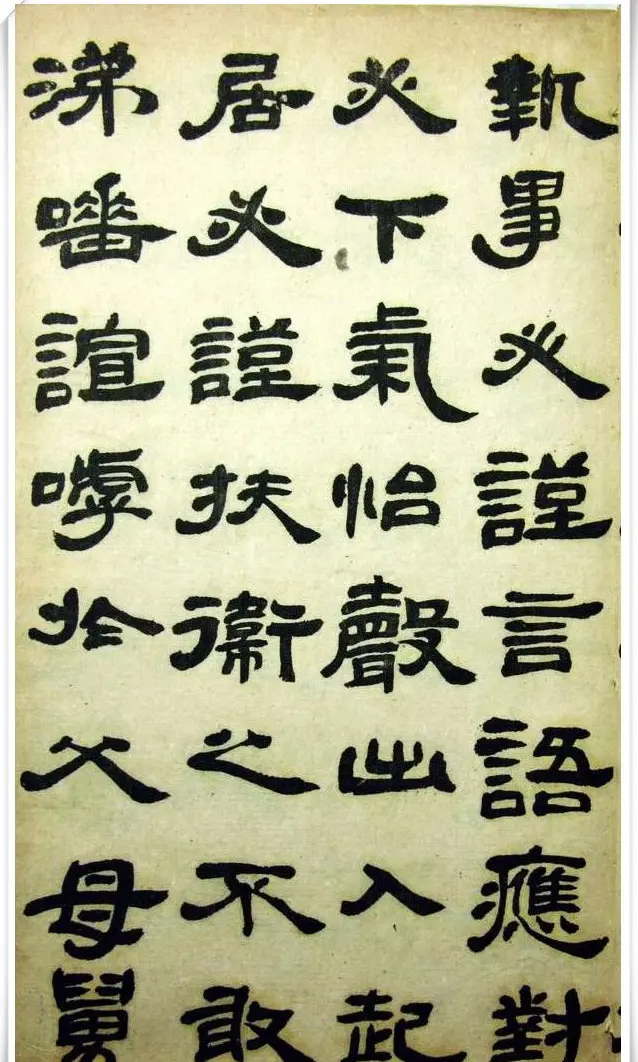 執事必謹言語應對
必下氣怡聲出入起
居必謹扶衛之不敢
涕唾諠嘑於父母舅